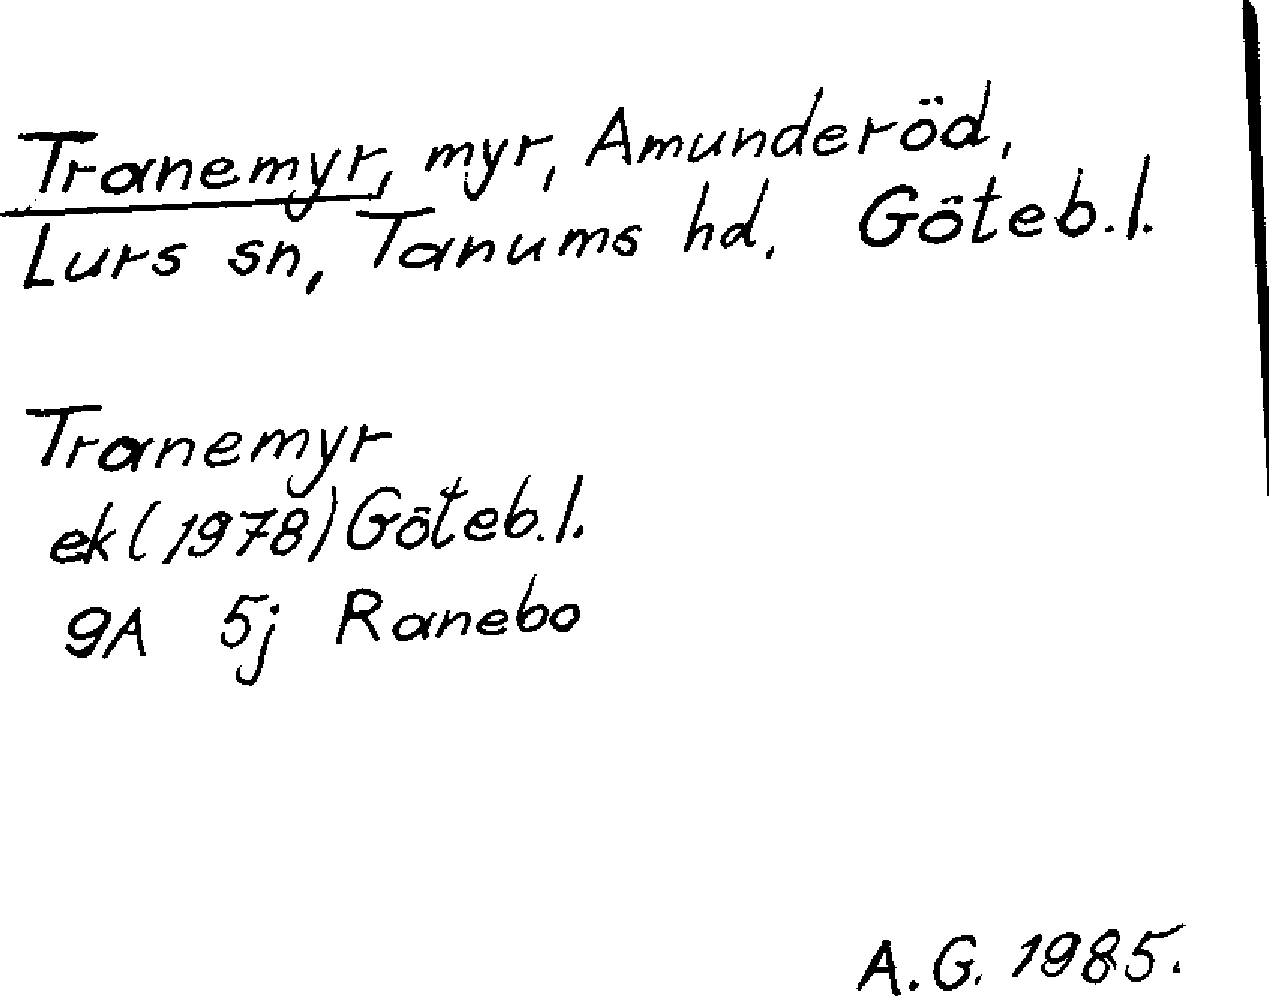 Tranemyr, myr, Amunderöd,
Lurs sn, Tanums hd, Göteb.l.
Tranemyr
ek (1978) Göteb.l.
9A 5j Ranebo
A.G. 1985.